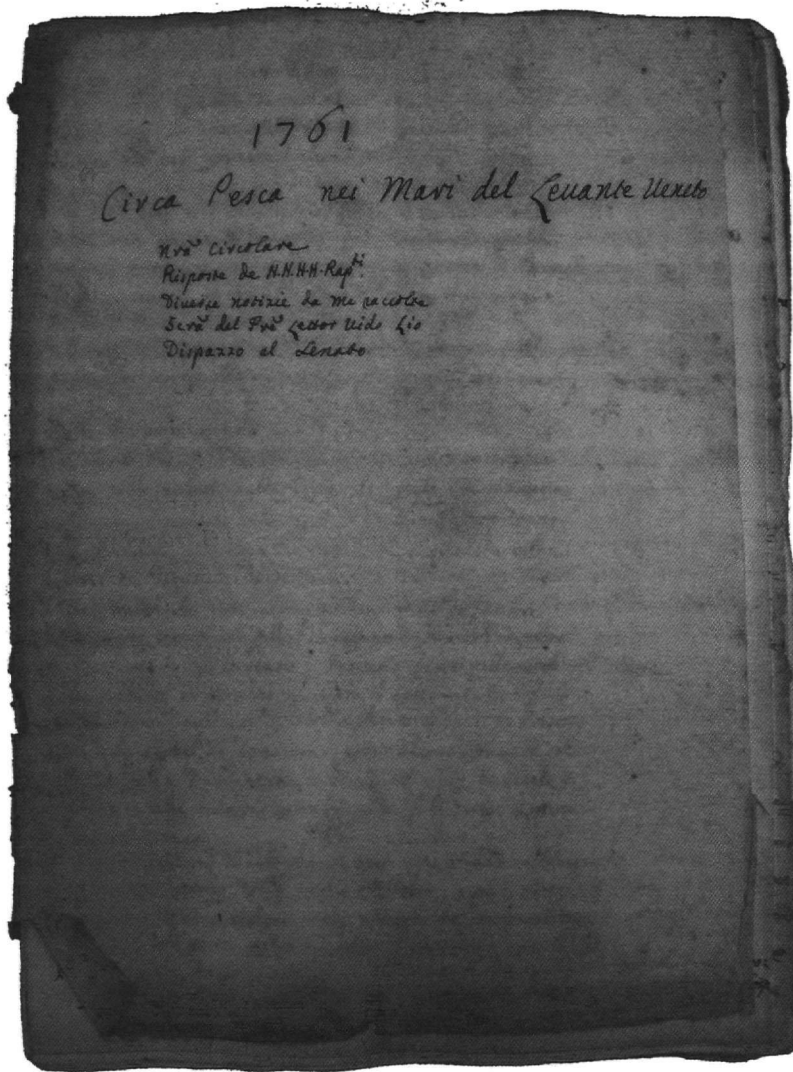 1761
Circa Pesca nei Mari del Levante Veneto
Nrã Circolare
Risposte de N.N.H.H. Rapti.
Diverse notizie da me raccolte
Scrã del Prã Lettor Vido Lio
Dispazzo al Senato